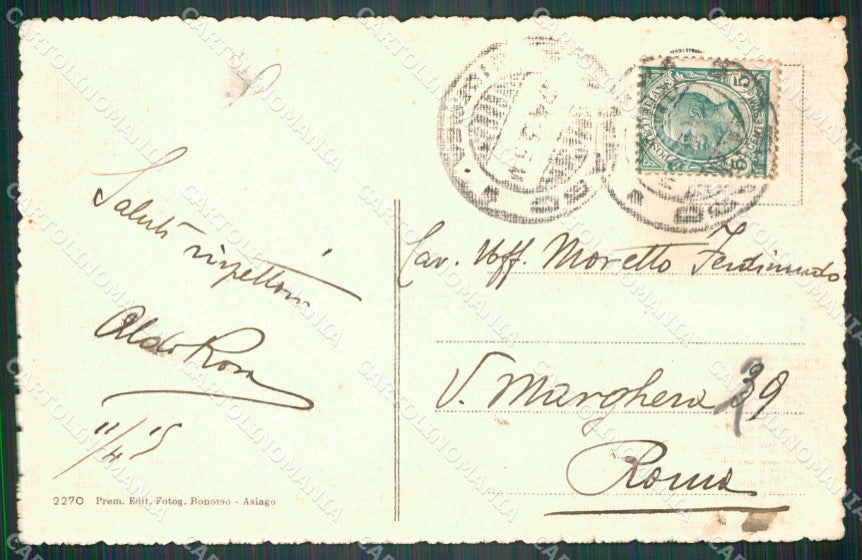 Saluti
rispettosi
Aldo Rossi
11/4 15
2270 Prem. Edit. Fotog. Bonomo - Asiago
Cav. Uff. Moretto Ferdinando
V. Marghera 39
Roma
CARTOLINOMANIA